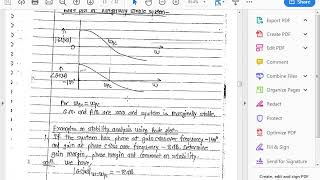 Bode plot of marginally stable system-
|G(jω)|
ωgc
ω
∠G(jω)
-180°
ωpc
ω
For ωgc = ωpc
G.M. and P.M. are zero and system is marginally stable.
Examples on stability analysis using Bode plot:-
1. If the system has phase at gain cross over frequency -140°
and gain at phase cross over frequency -8dB. Determine
gain margin, phase margin and comment on stability.
We have,
= -8dB
Export PDF
Edit PDF
Create PDF
Comment
Combine Files
Organize Pages
Compress PDF
Redact
Protect
Fill & Sign
Send for Signature
Create, edit and sign PDF